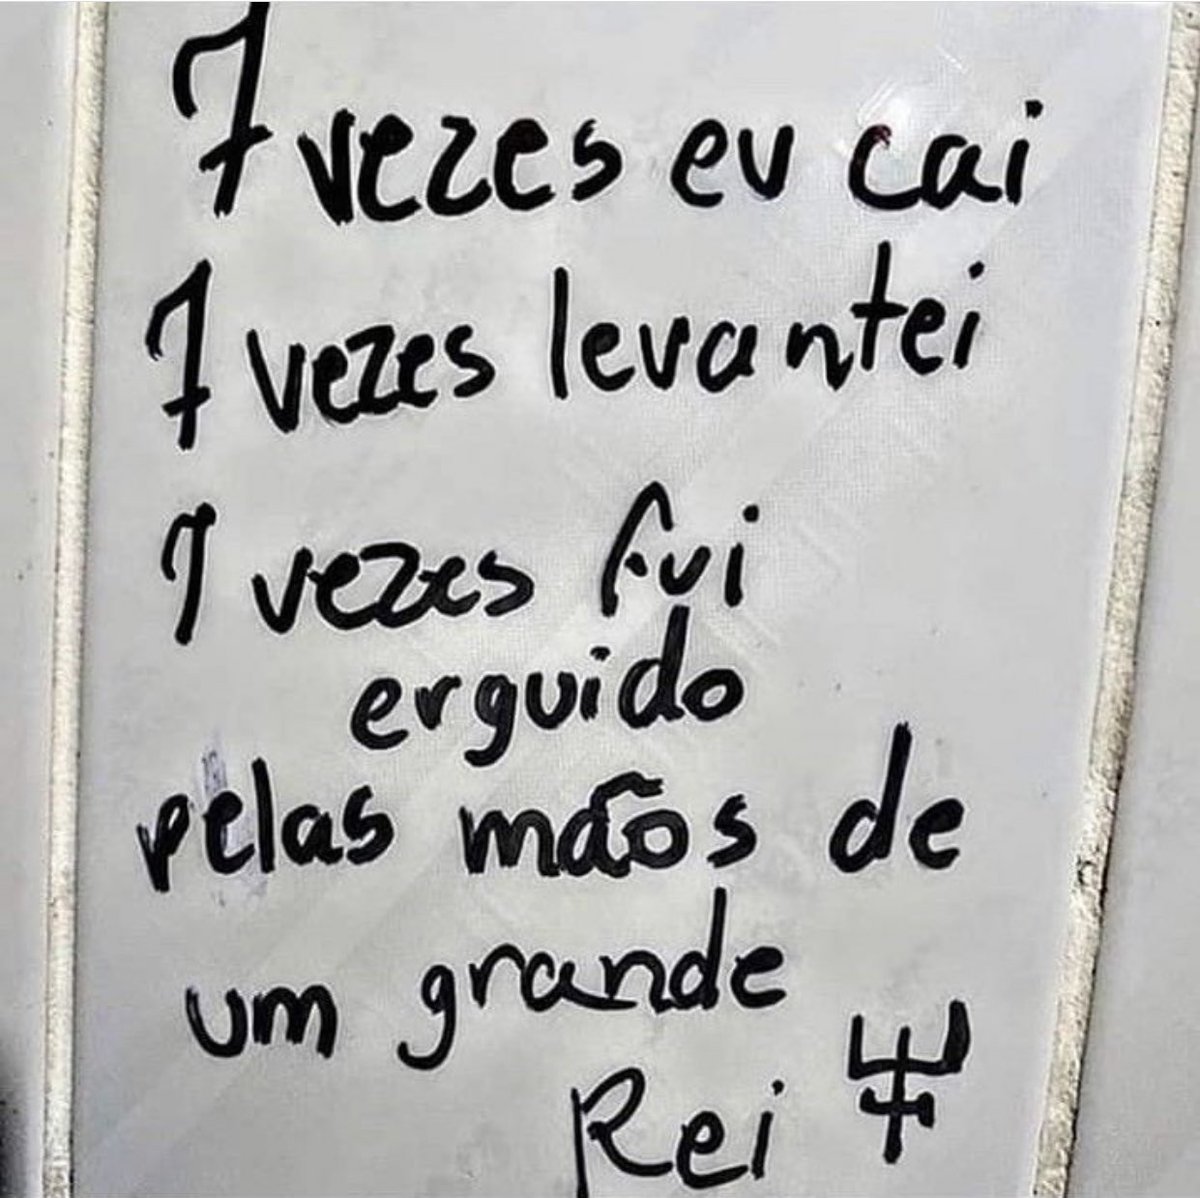 7 vezes eu cai
7 vezes levantei
7 vezes fui
erguido
pelas mãos de
um grande
Rei